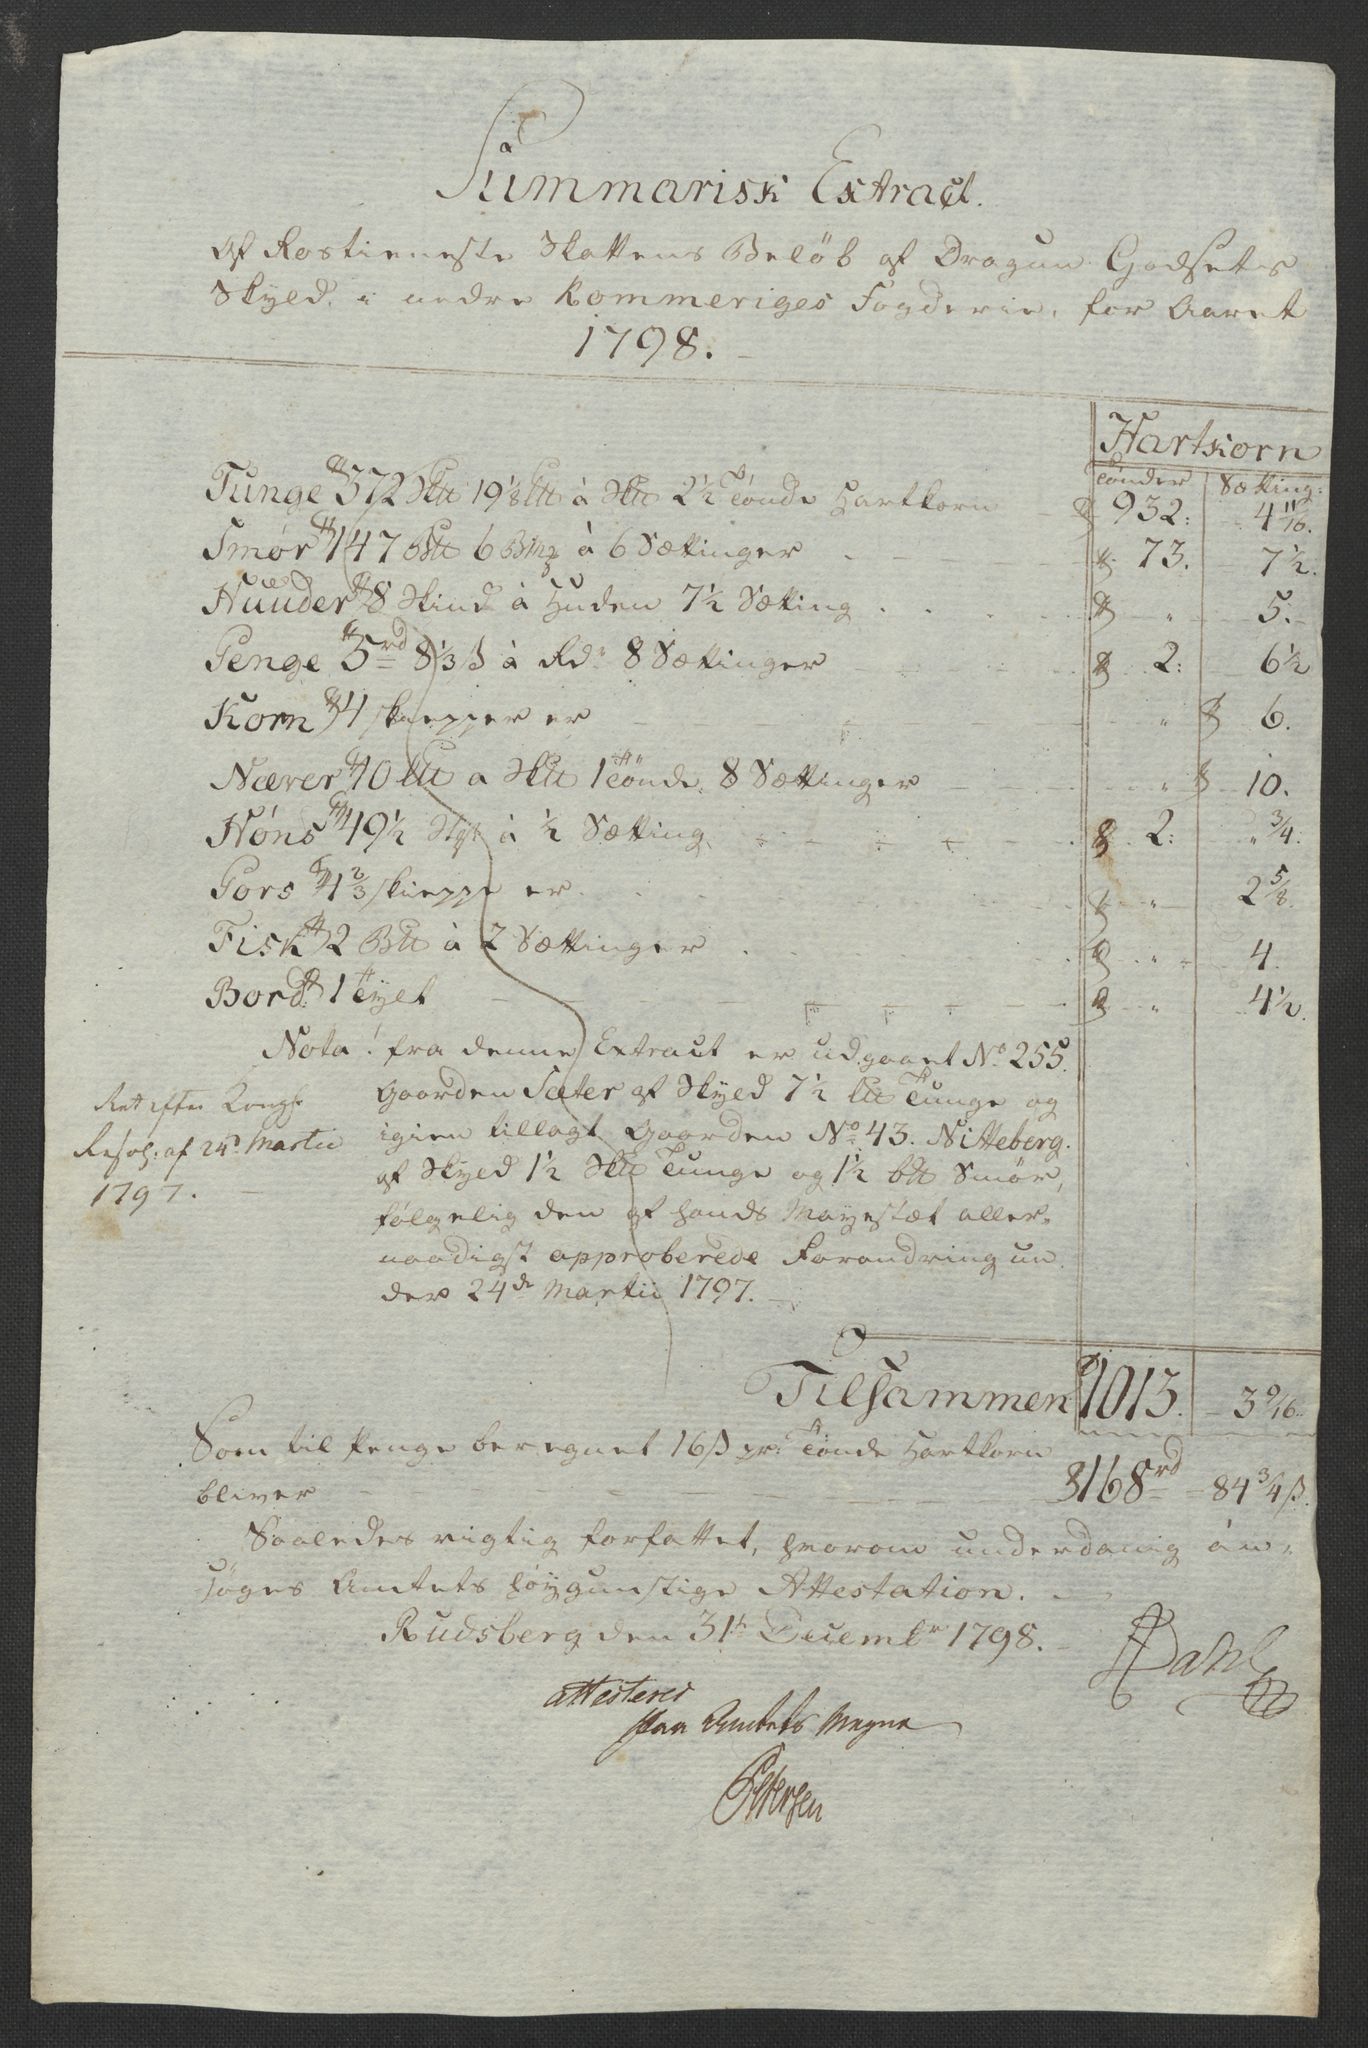 Summarisk Extract.
Af Rostieneste Skattens Beløb af Dragun Godsets
Skyld i nedre Rommeriges Fogderie, for Aaret
1798.
Hartkorn
Tønder Sætting:
Tunge 372 Sk℔ 19⅛ ℔ à Sk℔ 2½ Tønde Hartkorn 932: 4 11/16.
Smør 147 B℔ 6 Bmꝝ à 6 Sættinger 73. 7½.
Huuder 8 Skind à Huden 7½ Sætting 〃 5.
Penge 5 rd 8⅓ β à Rdr 8 Sættinger 2: 6½
Korn 4 skiepper er 〃 6.
Næver 10 L℔ a Sk℔ 1 Tønde 8 Sættinger 〃 10.
Høns 49½ Stk à ½ Sætting 2: 〃 ¾.
Pors 1⅔ skieppe er 〃 2⅝.
Fisk 2 B℔ à 2 Sættinger 〃 4.
Bord 1 Tylt 〃 4½.
Nota! fra denne Extract er udgaaet No 255.
Gaarden Sæter af Skyld 7½ L℔ Tunge og
igien tillagt Gaarden No 43. Nitteberg.
af Skyld 1½ Sk℔ Tunge og 1½ b℔ Smør,
følgelig den af hands Mayestæt aller-
naadigst approberede Forandring un
der 24de Martii 1797.
Rett efter Kongl.
Resol: af 24d Martii
1797.
Tilsammen 1013. 3 9/16.
Som til Penge beregnet 16 β pr: Tønde Hartkorn
bliver 168 rd 84¾ β.
Saaledes rigtig forfattet, hvorom underdanig an-
søges Amtets høygunstige Attestation.
Rudsberg den 31te Decembr 1798.
Dahl
attesteres
paa Amtets Vegne
Petersen